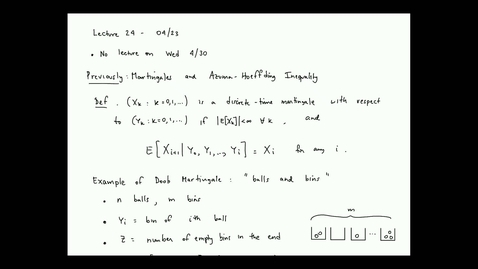 Lecture 24 - 04/23
• No lecture on Wed 4/30
Previously: Martingales and Azuma-Hoeffding Inequality
Def. (Xₖ : k=0,1,...) is a discrete-time martingale with respect
to (Yₖ : k=0,1,...) if |E[Xₖ]|<∞ ∀ k , and
E[Xᵢ₊₁ | Y₀, Y₁, ..., Yᵢ] = Xᵢ for any i.
Example of Doob Martingale: "balls and bins"
• n balls, m bins
m
• Yᵢ = bin of ith ball
...
• Z = number of empty bins in the end